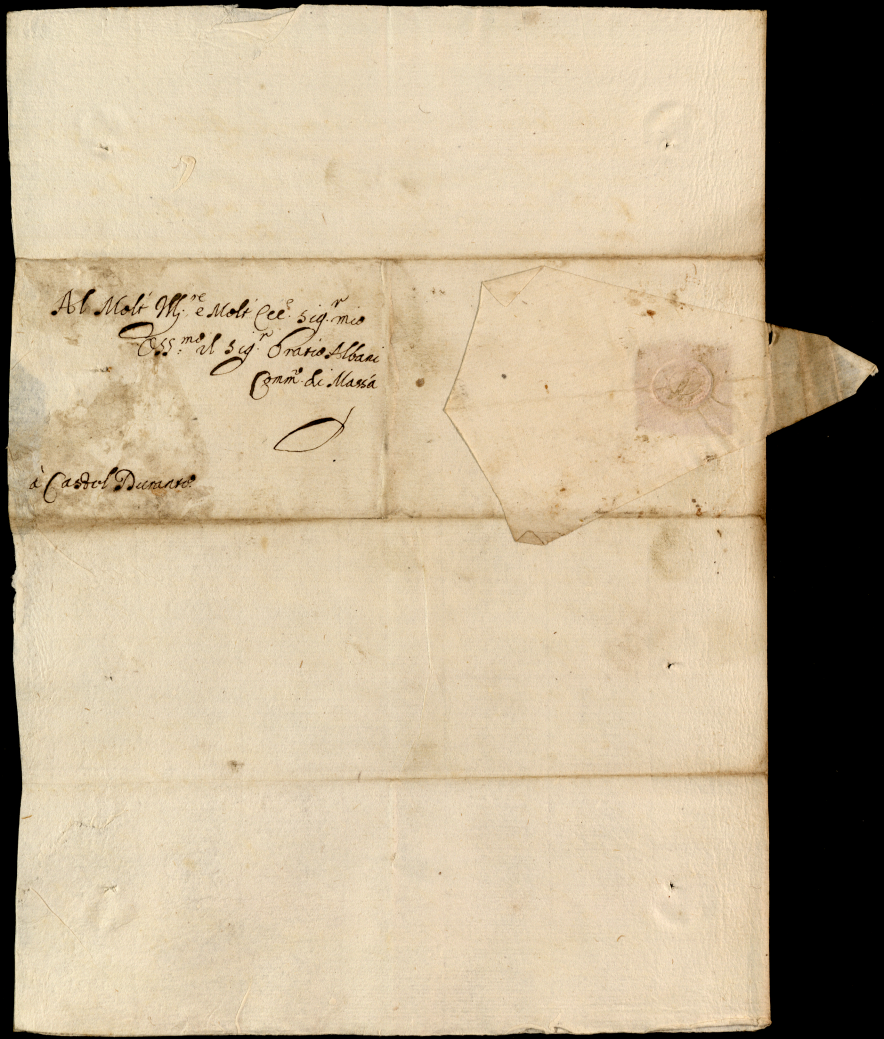 Al Molt' Ill.re e Molt' Ecc.e Sig.r mio
Oss.mo il Sig.r Oratio Albani
Comm.o di Massa
à Castel Durante